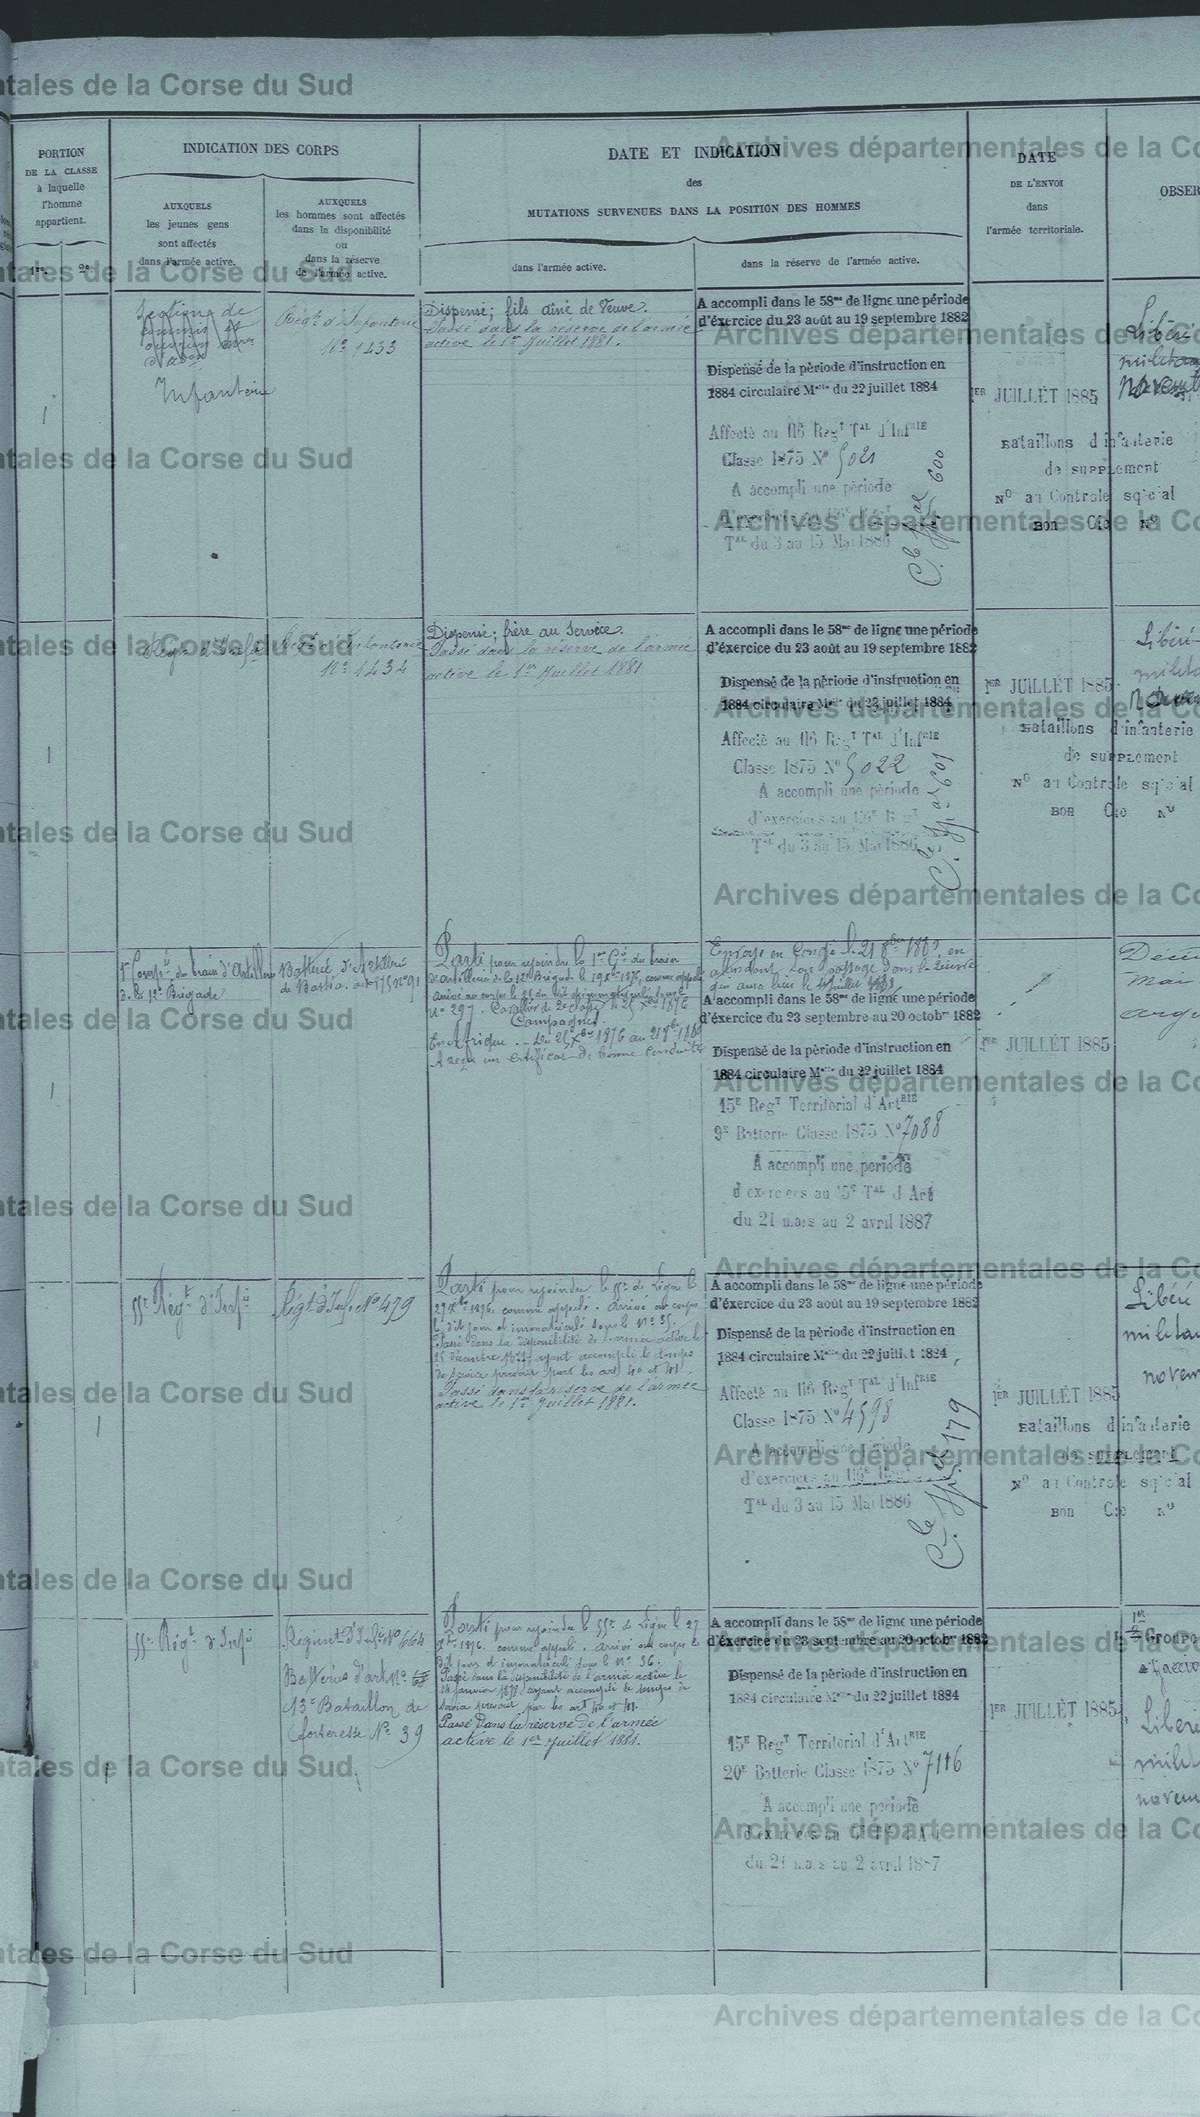 PORTION
DE LA CLASSE
à laquelle
l'homme
appartient.
1re.
2e
INDICATION DES CORPS
AUXQUELS
les jeunes gens
sont affectés
dans l'armée active.
AUXQUELS
les hommes sont affectés
dans la disponibilité
ou
dans la réserve
de l'armée active.
DATE ET INDICATION
des
MUTATIONS SURVENUES DANS LA POSITION DES HOMMES
dans l'armée active.
dans la réserve de l'armée active.
DATE
DE L'ENVOI
dans
l'armée territoriale.
OBSER
1
Sections de
commis et
ouvriers
Infanterie
Régt d'Infanterie
No 1433
Dispensé; fils aîné de Veuve.
Passé dans la réserve de l'armée
active le 1er Juillet 1881.
A accompli dans le 58me de ligne une période
d'éxercice du 23 août au 19 septembre 1882
Dispensé de la pèriode d'instruction en
1884 circulaire Melle du 22 juillet 1884
Affecté au 116 Regt Tal d'Infrie
Classe 1875 No 5021
A accompli une pèriode
Tal du 3 au 15 Mai 1886
Cle Spal 600
1ER JUILLET 1885
Bataillons d'infanterie
de supplément
No au Contrôle spécial
Bon Cie No
Libéré
milita
novem
1
Régt d'Infie
Régt d'Infanterie
No 1434
Dispensé; frère au Service.
Passé dans la réserve de l'armée
active le 1er Juillet 1881
A accompli dans le 58me de ligne une période
d'éxercice du 23 août au 19 septembre 1882
Dispensé de la pèriode d'instruction en
1884 circulaire Melle du 22 juillet 1884
Affecté au 116 Regt Tal d'Infrie
Classe 1875 No 5022
A accompli une pèriode
d'exercices au 116e Regt
Tal du 3 au 15 Mai 1886
Cle Spal 601
1ER JUILLET 1885
Bataillons d'infanterie
de supplément
No au Contrôle spécial
Bon Cie No
Libéré
milita
1
1re Compie du train d'Artillerie
de la 12e Brigade
Batterie d'Artillerie
de Bastia. No 91
Parti pour rejoindre le 1er Cie du train
d'artillerie de la 12e Brigade le 19 Xbre 1876, comme appelé
No 297. Cavalier de 2e classe le 25 Xbre 1876
Campagnes.
En Afrique. – Du 25 Xbre 1876 au 21 8bre 1880
A reçu un certificat de bonne conduite
Envoyé en Congé le 21 8bre 1880, en
attendant son passage dans la réserve
qui aura lieu le 1er juillet 1881
A accompli dans le 58me de ligne une période
d'éxercice du 23 septembre au 20 octobr 1882
Dispensé de la pèriode d'instruction en
1884 circulaire Melle du 22 juillet 1884
15E Regt Territorial d'Artrie
9e Batterie Classe 1875 No 7088
A accompli une periode
d'exercices au 15e Tal d'Art
du 21 mars au 2 avril 1887
1er JUILLET 1885
Décé
mai
1
55e Régt d'Infie
Régt d'Inf. No 479
Parti pour rejoindre le 55e de Ligne le
29 Xbre 1876, comme appelé. Arrivé au corps
le dit jour et immatriculé sous le No 35.
Passé dans la disponibilité de l'armée active le
15 décembre 1877, ayant accompli le temps
de service prescrit par les art. 40 et 41.
Passé dans la réserve de l'armée
active le 1er Juillet 1881.
A accompli dans le 58me de ligne une période
d'éxercice du 23 août au 19 septembre 1882
Dispensé de la pèriode d'instruction en
1884 circulaire Melle du 22 juillet 1884
Affecté au 116 Regt Tal d'Infrie
Classe 1875 No 4598
A accompli une pèriode
d'exercices au 116e Regt
Tal du 3 au 15 Mai 1886
Cle Spal 179
1ER JUILLET 1885
Bataillons d'infanterie
de supplément
No au Contrôle spécial
Bon Cie No
Libéré
militai
novem
1
55e Régt d'Infie
Régiment d'Infie No 664
Batterie d'art. No
13e Bataillon de
forteresse No 39
Parti pour rejoindre le 55e de Ligne le 27
Xbre 1876, comme appelé. Arrivé au corps le
dit jour et immatriculé sous le No 36.
Passé dans la disponibilité de l'armée active le
janvier 1878, ayant accompli le temps de
service prescrit par les art. 40 et 41.
Passé dans la réserve de l'armée
active le 1er Juillet 1881.
A accompli dans le 58me de ligne une période
d'éxercice du 23 septembre au 20 octobr 1882
Dispensé de la pèriode d'instruction en
1884 circulaire Melle du 22 juillet 1884
15E Regt Territorial d'Artrie
20E Batterie Classe 1875 No 7116
A accompli une periode
du 21 mars au 2 avril 1887
1ER JUILLET 1885
Groupe
Libéré
milit
novem
ntales de la Corse du Sud
Archives départementales de la Co